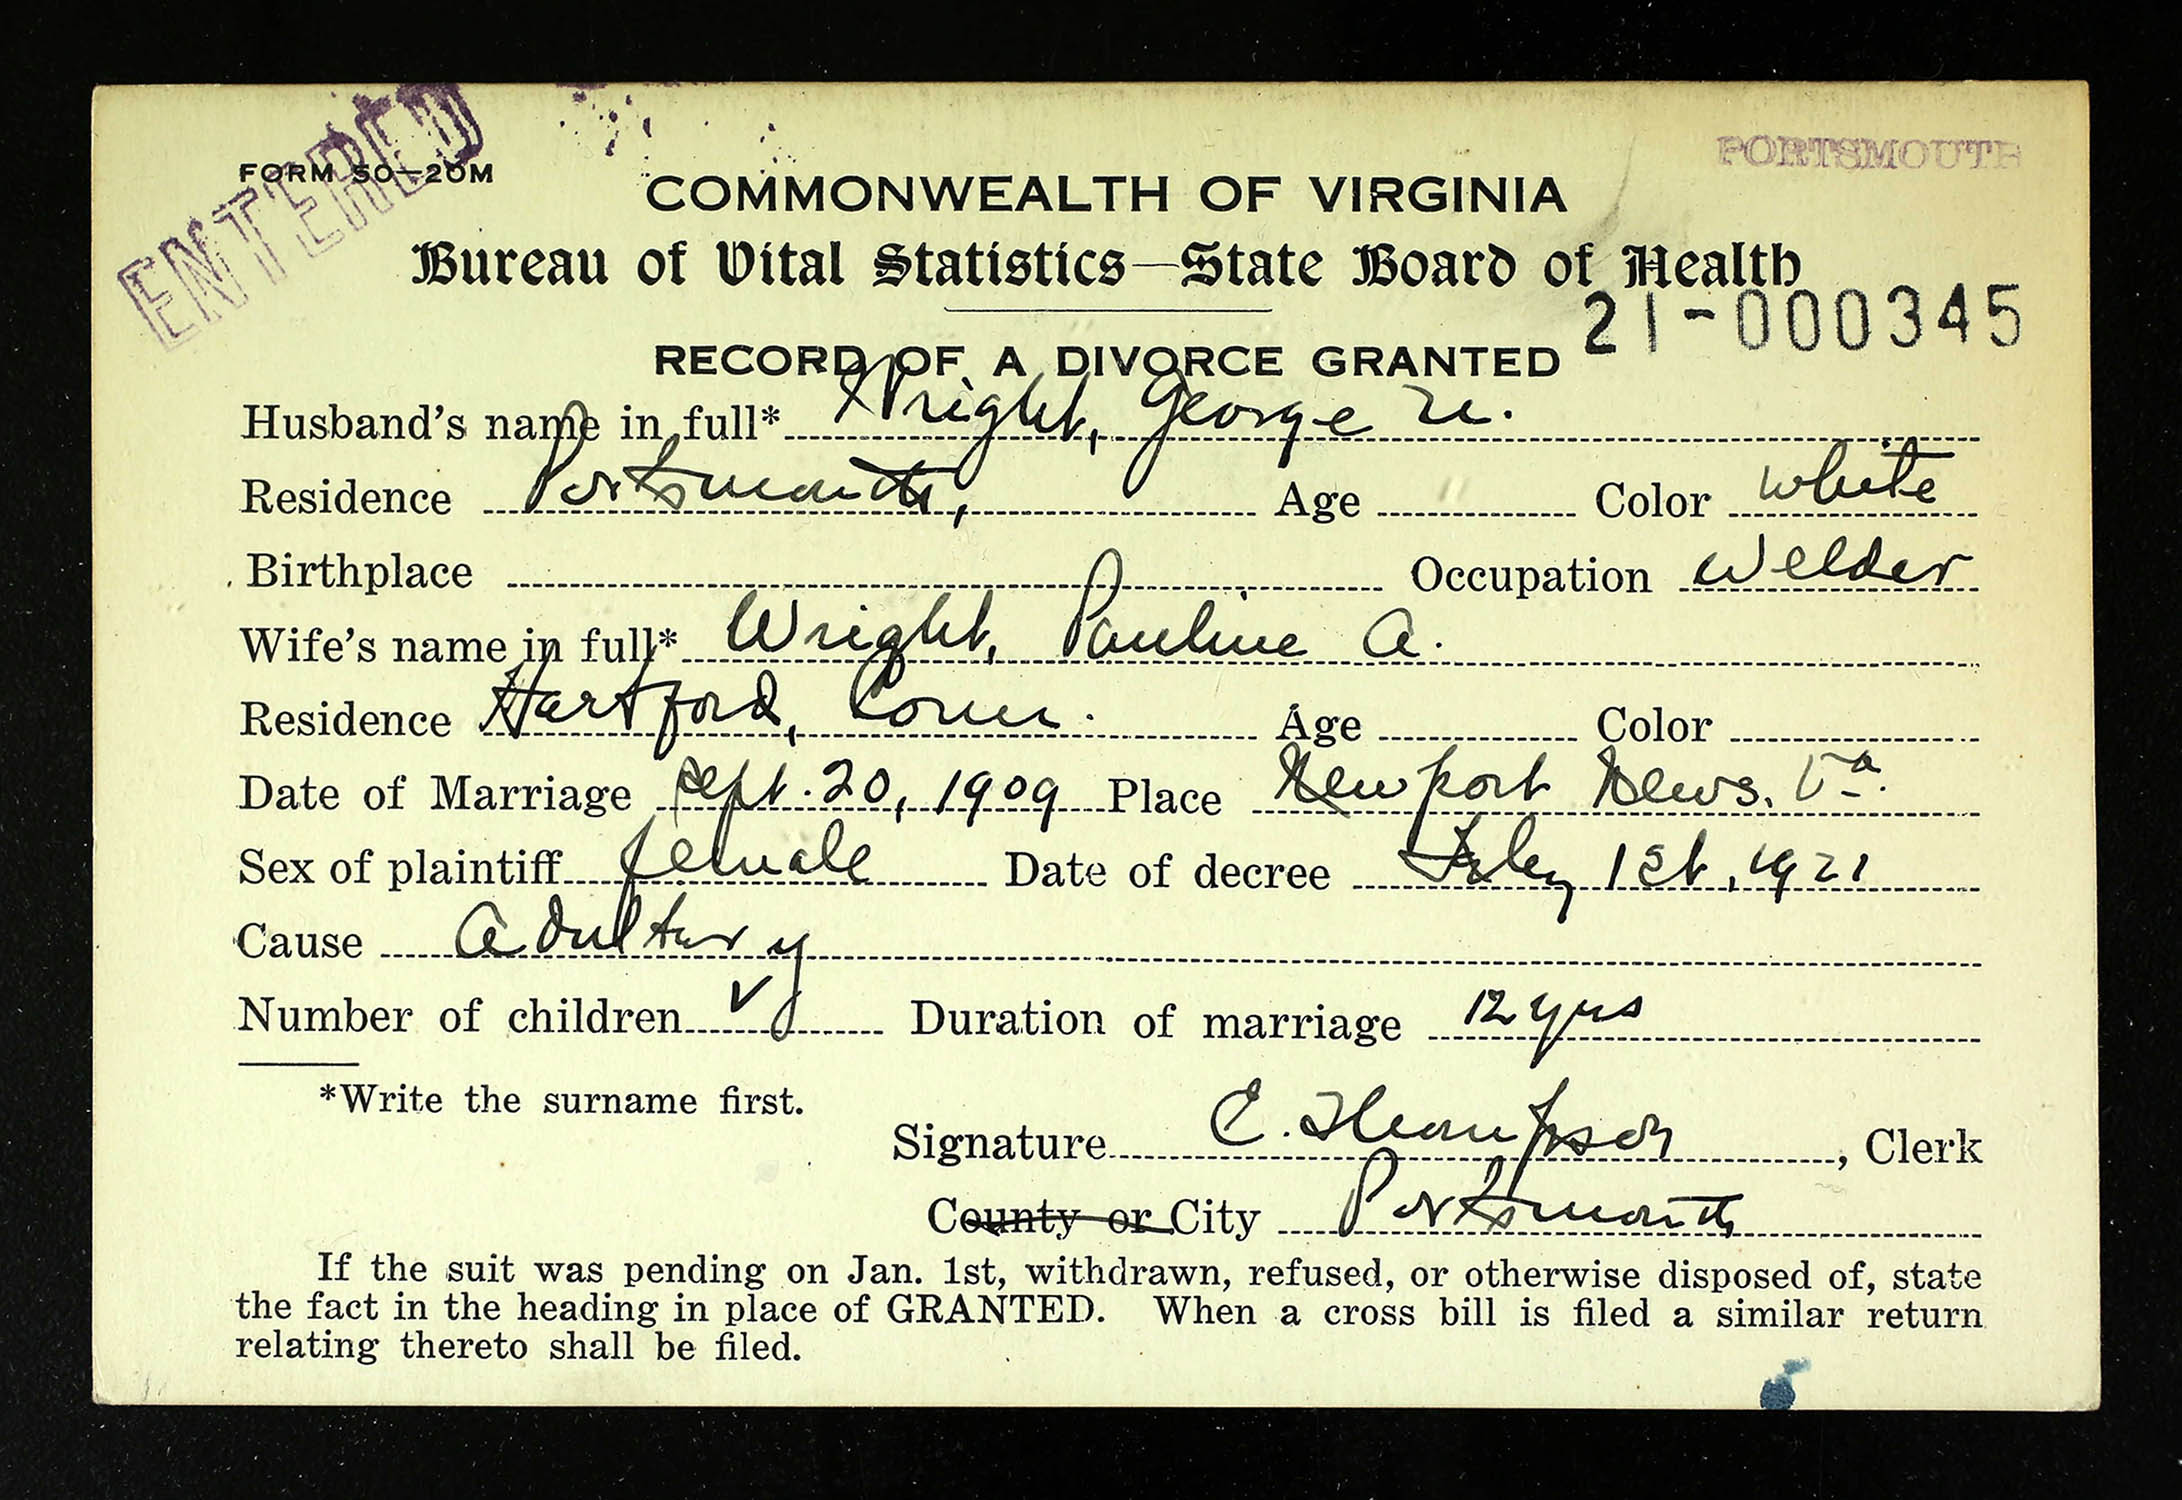 ENTERED
PORTSMOUTH
FORM 50—20M
COMMONWEALTH OF VIRGINIA
Bureau of Vital Statistics—State Board of Health
21-000345
RECORD OF A DIVORCE GRANTED
Husband's name in full* Wright, George
Residence Portsmouth, Age Color white
Birthplace Occupation Welder
Wife's name in full* Wright, Pauline A.
Residence Hartford, Conn. Age Color
Date of Marriage Sept. 20, 1909 Place Newport News, Va.
Sex of plaintiff female Date of decree 1st, 1921
Cause Adultery
Number of children ✓ Duration of marriage 12 yrs
*Write the surname first.
Signature E. Thompson, Clerk
County or City Portsmouth
If the suit was pending on Jan. 1st, withdrawn, refused, or otherwise disposed of, state
the fact in the heading in place of GRANTED. When a cross bill is filed a similar return
relating thereto shall be filed.